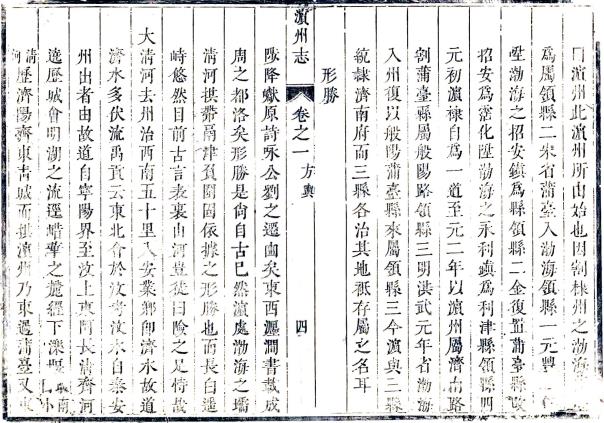 濵州此濵州所由始也因割棣州之渤海
為屬領縣二宋省蒲臺入渤海領縣一元豐
陞渤海之招安鎮為縣領縣二金復置蒲臺縣改
招安為霑化陞渤海之永利鎮為利津縣領縣四
元初濵棣自為一道至元二年以濵州屬濟南路
割蒲臺縣屬般陽路領縣三明洪武元年省渤海
入州復以般陽蒲臺縣來屬領縣三今濵與三縣
統隷濟南府而三縣各治其地祇存屬之名耳
形勝
濵州志
卷之一 方輿
四
陟降巘原詩咏公劉之遷豳矣東西瀍澗書載成
周之都洛矣形勝是尚自古已然濵處渤海之壖
清河拱帶鬲津貫闢固依據之形勝也而長白遥
峙悠然目前古言表裏山河豈徒曰險之足恃哉
大清河去州治西南五十里入安業鄉卽濟水故道
濟水多伏流禹貢云東北會於汶考汶水自泰安
州出者由故道自寧陽界至汶上東阿長清齊河
逶歷城會明湖之流逕鵲華之麓經下濼堰
清河歷濟陽齊東青城而拱濵州乃東過蒲臺又東